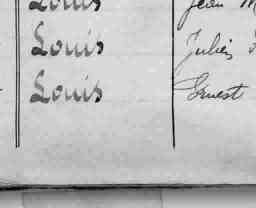 Louis Jean M
Louis Julien
Louis Ernest